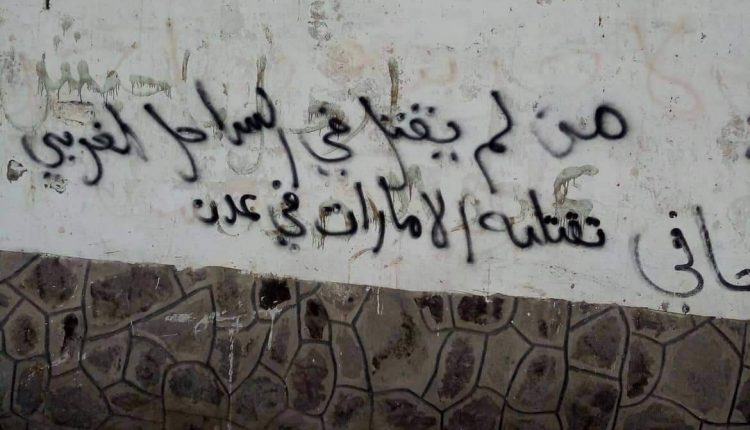 من لم يقتل في الساحل الغربي
تقتله الامارات في عدن